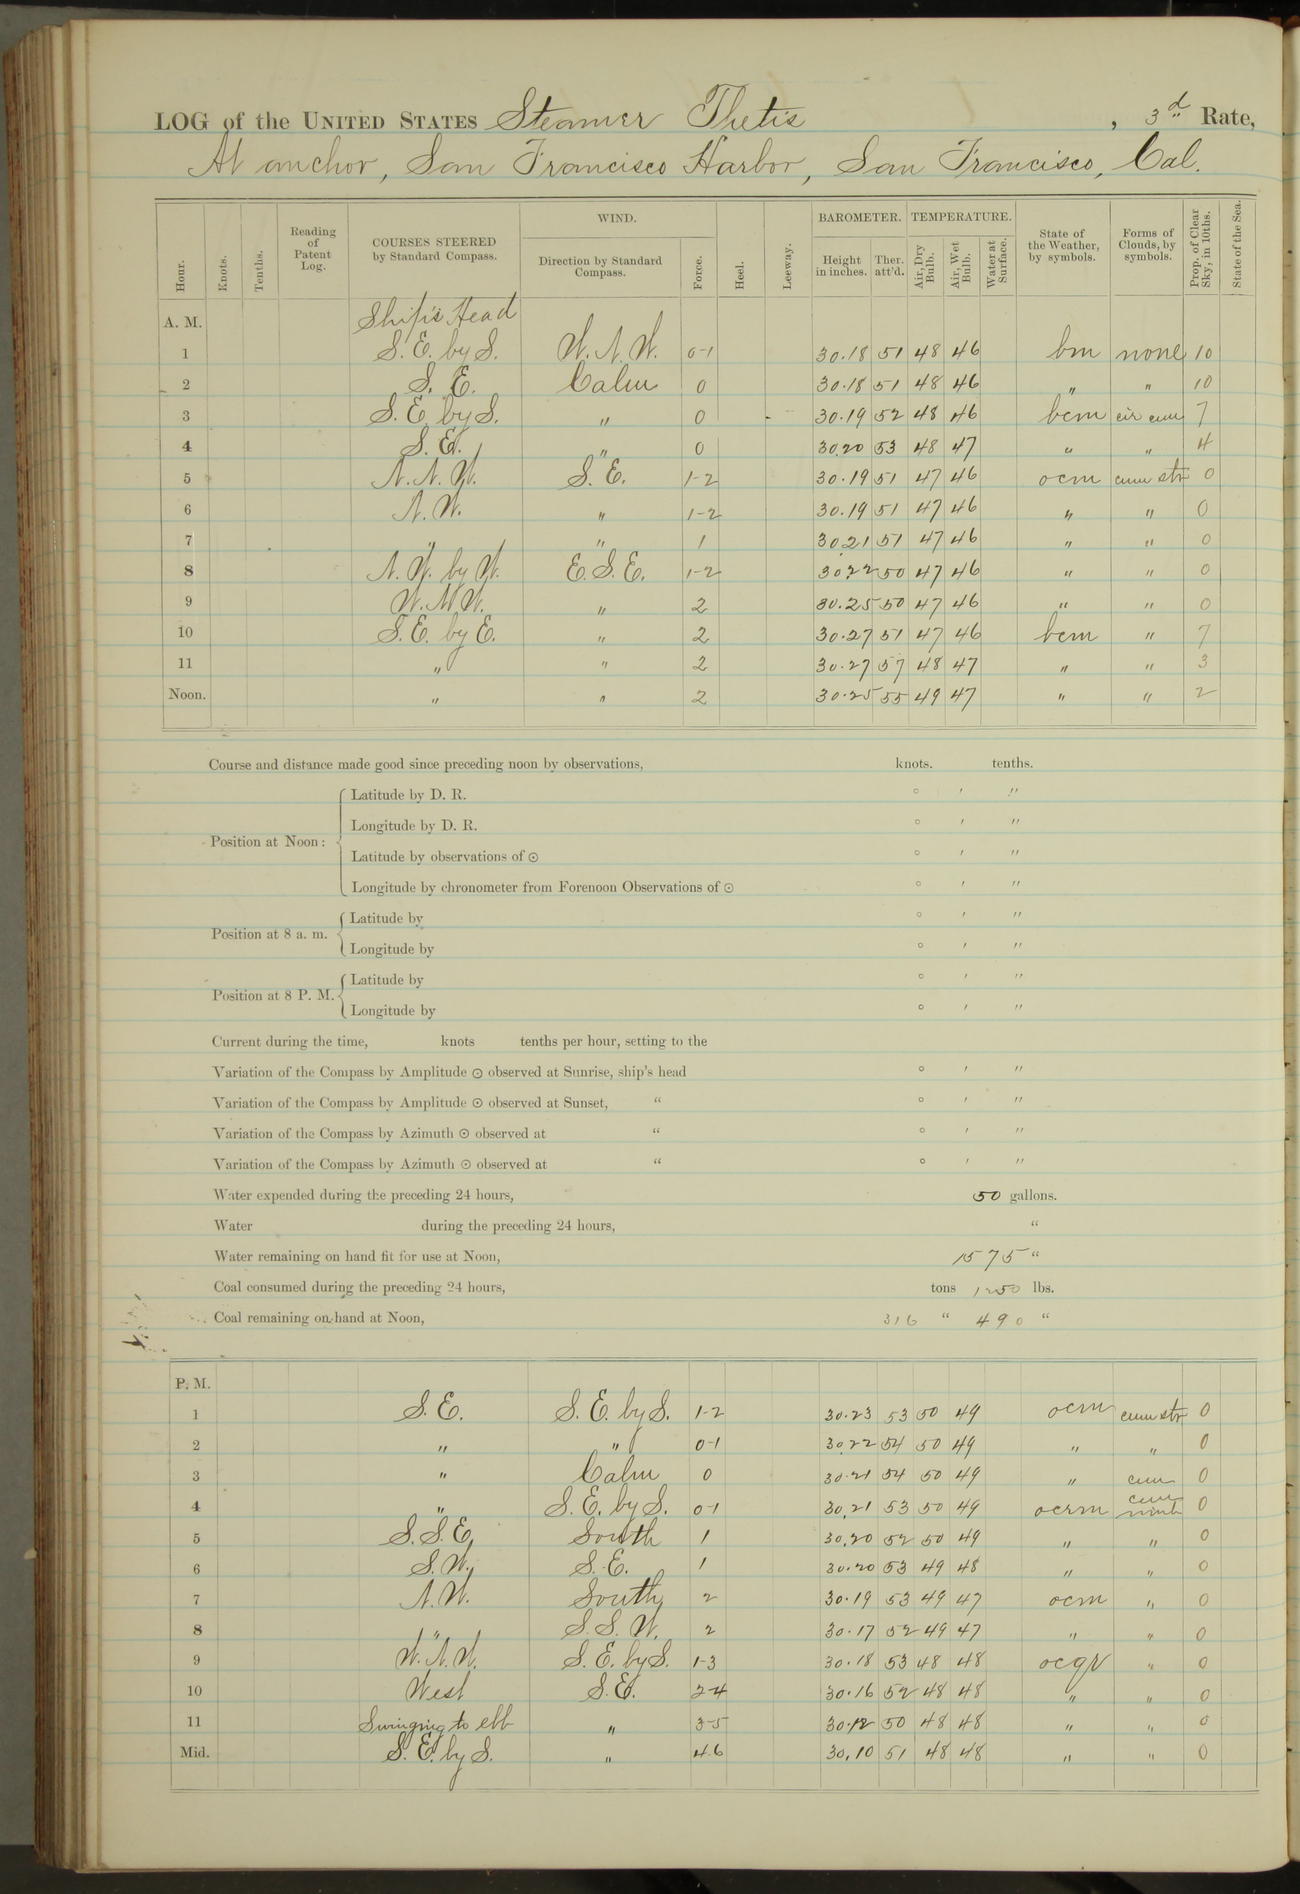 LOG of the UNITED STATES Steamer Thetis, 3d Rate,
At anchor, San Francisco Harbor, San Francisco, Cal.
WIND. BAROMETER. TEMPERATURE.
Hour. Knots. Tenths. Reading of Patent Log. COURSES STEERED by Standard Compass. Direction by Standard Compass. Force. Heel. Leeway. Height in inches. Ther. att'd. Air, Dry Bulb. Air, Wet Bulb. Water at Surface. State of the Weather, by symbols. Forms of Clouds, by symbols. Prop. of Clear Sky, in 10ths. State of the Sea.
A. M. Ship's Head
1 S. E. by S. W. N. W. 0-1 30.18 51 48 46 bm none 10
2 S. E. Calm 0 30.18 51 48 46 " " 10
3 S. E. by S. " 0 30.19 52 48 46 bcm cir cum 7
4 S. E. " 0 30.20 53 48 47 " " 4
5 N. N. W. S. E. 1-2 30.19 51 47 46 ocm cum str 0
6 N. W. " 1-2 30.19 51 47 46 " " 0
7 " " 1 30.21 51 47 46 " " 0
8 N. W. by W. E. S. E. 1-2 30.22 50 47 46 " " 0
9 W. N. W. " 2 30.25 50 47 46 " " 0
10 S. E. by E. " 2 30.27 51 47 46 bcm " 7
11 " " 2 30.27 57 48 47 " " 3
Noon. " " 2 30.25 55 49 47 " " 2
Course and distance made good since preceding noon by observations, knots. tenths.
Position at Noon: Latitude by D. R. ° ′ ″
Longitude by D. R. ° ′ ″
Latitude by observations of ⊙ ° ′ ″
Longitude by chronometer from Forenoon Observations of ⊙ ° ′ ″
Position at 8 a. m. Latitude by ° ′ ″
Longitude by ° ′ ″
Position at 8 P. M. Latitude by ° ′ ″
Longitude by ° ′ ″
Current during the time, knots tenths per hour, setting to the
Variation of the Compass by Amplitude ⊙ observed at Sunrise, ship's head ° ′ ″
Variation of the Compass by Amplitude ⊙ observed at Sunset, " ° ′ ″
Variation of the Compass by Azimuth ⊙ observed at " ° ′ ″
Variation of the Compass by Azimuth ⊙ observed at " ° ′ ″
Water expended during the preceding 24 hours, 50 gallons.
Water during the preceding 24 hours, "
Water remaining on hand fit for use at Noon, 1575 "
Coal consumed during the preceding 24 hours, tons 1250 lbs.
Coal remaining on hand at Noon, 316 " 490 "
P. M.
1 S. E. S. E. by S. 1-2 30.23 53 50 49 ocm cum str 0
2 " " 0-1 30.22 54 50 49 " " 0
3 " Calm 0 30.21 54 50 49 " cum 0
4 " S. E. by S. 0-1 30.21 53 50 49 ocrm cum nimb 0
5 S. S. E. South 1 30.20 52 50 49 " " 0
6 S. W. S. E. 1 30.20 53 49 48 " " 0
7 N. W. South 2 30.19 53 49 47 ocm " 0
8 " S. S. W. 2 30.17 52 49 47 " " 0
9 W. N. W. S. E. by S. 1-3 30.18 53 48 48 ocqr " 0
10 West S. E. 2-4 30.16 52 48 48 " " 0
11 Swinging to ebb " 3-5 30.12 50 48 48 " " 0
Mid. S. E. by S. " 4-6 30.10 51 48 48 " " 0